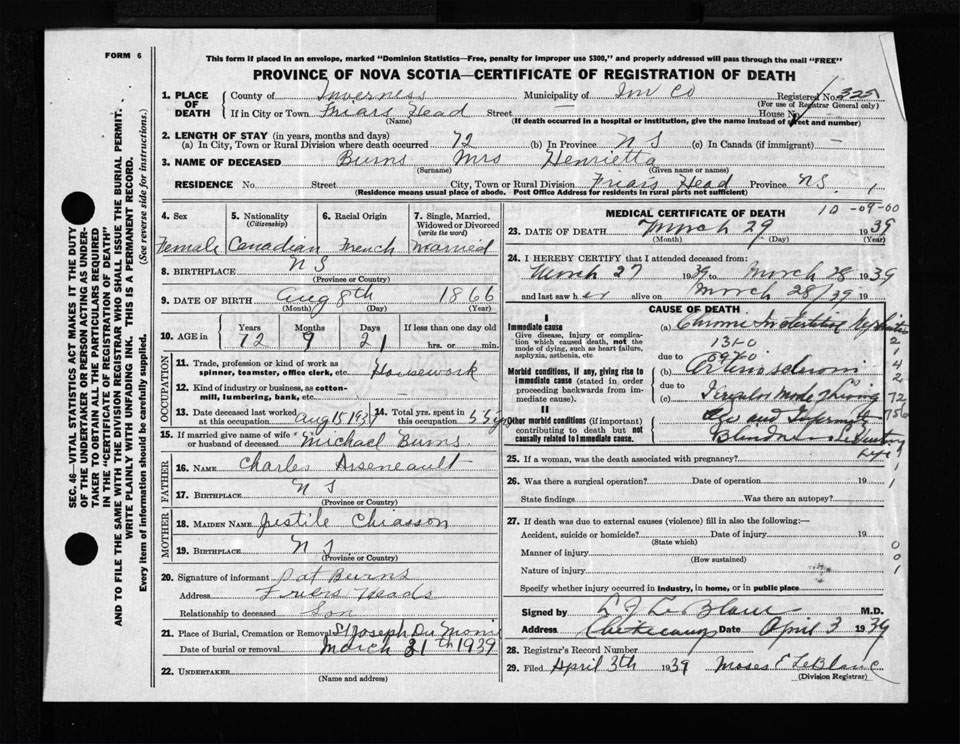 FORM 6
This form if placed in an envelope, marked "Dominion Statistics—Free, penalty for improper use $300," and properly addressed will pass through the mail "FREE"
PROVINCE OF NOVA SCOTIA—CERTIFICATE OF REGISTRATION OF DEATH
1. PLACE OF DEATH
County of Inverness Municipality of Inv Co Registered No. 325
(For use of Registrar General only)
If in City or Town Friars Head Street — House No.
(Name) (If death occurred in a hospital or institution, give the name instead of street and number)
2. LENGTH OF STAY (in years, months and days)
(a) In City, Town or Rural Division where death occurred 72 (b) In Province N S (c) In Canada (if immigrant) —
3. NAME OF DECEASED Burns Mrs Henrietta
(Surname) (Given name or names)
RESIDENCE No. Street City, Town or Rural Division Friars Head Province N.S.
(Residence means usual place of abode. Post Office Address for residents in rural parts not sufficient)
4. Sex
Female
5. Nationality
(Citizenship)
Canadian
6. Racial Origin
French
7. Single, Married, Widowed or Divorced
(write the word)
Married
8. BIRTHPLACE N S
(Province or Country)
9. DATE OF BIRTH Aug 8th 1866
(Month) (Day) (Year)
10. AGE in
Years Months Days If less than one day old
72 9 21 hrs. or min.
OCCUPATION
11. Trade, profession or kind of work as spinner, teamster, office clerk, etc. Housework
12. Kind of industry or business, as cotton-mill, lumbering, bank, etc. —
13. Date deceased last worked at this occupation Aug 15 1937
14. Total yrs. spent in this occupation 55 yrs
15. If married give name of wife or husband of deceased Michael Burns
FATHER
16. NAME Charles Arseneault
17. BIRTHPLACE N S
(Province or Country)
MOTHER
18. MAIDEN NAME Justile Chiasson
19. BIRTHPLACE N S
(Province or Country)
20. Signature of informant Pat Burns
Address Friers Heads
Relationship to deceased Son
21. Place of Burial, Cremation or Removal St Joseph Du Moine
Date of burial or removal March 31th 1939
22. UNDERTAKER
(Name and address)
10 -09-00
MEDICAL CERTIFICATE OF DEATH
23. DATE OF DEATH March 29 1939
(Month) (Day) (Year)
24. I HEREBY CERTIFY that I attended deceased from:
March 27 1939 to March 28 1939
and last saw her alive on March 28/39 19
CAUSE OF DEATH
I
Immediate cause
Give disease, injury or complication which caused death, not the mode of dying, such as heart failure, asphyxia, asthenia, etc
(a) Chronic Interstitial Nephritis
1310
due to
0970
Morbid conditions, if any, giving rise to immediate cause (stated in order proceeding backwards from immediate cause).
(b) Arteriosclerosis
due to
(c)
II
Other morbid conditions (if important) contributing to death but not causally related to Immediate cause.
Age and Infirmity
25. If a woman, was the death associated with pregnancy?
26. Was there a surgical operation? Date of operation 19
State findings Was there an autopsy?
27. If death was due to external causes (violence) fill in also the following:—
Accident, suicide or homicide? Date of injury 19
(State which)
Manner of injury
(How sustained)
Nature of injury
Specify whether injury occurred in industry, in home, or in public place
Signed by L J Le Blanc M.D.
Address Cheticamp Date April 3 1939
28. Registrar's Record Number
29. Filed April 3th 1939 Moses E LeBlanc
(Division Registrar)
SEC. 46—VITAL STATISTICS ACT MAKES IT THE DUTY
OF THE UNDERTAKER OR PERSON ACTING AS UNDER-
TAKER TO OBTAIN ALL THE PARTICULARS REQUIRED
IN THE "CERTIFICATE OF REGISTRATION OF DEATH"
AND TO FILE THE SAME WITH THE DIVISION REGISTRAR WHO SHALL ISSUE THE BURIAL PERMIT.
WRITE PLAINLY WITH UNFADING INK. THIS IS A PERMANENT RECORD.
Every item of information should be carefully supplied. (See reverse side for instructions.)